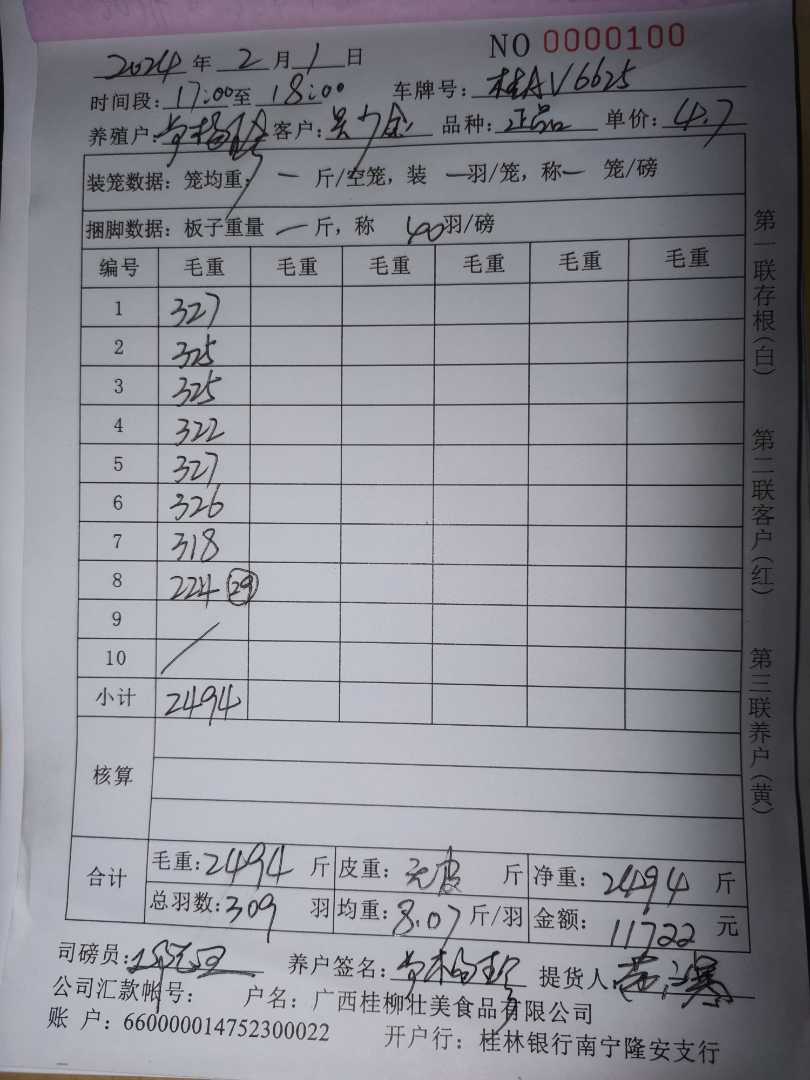 NO 0000100
2024 年 2 月 1 日
时间段: 17:00 至 18:00 车牌号: 桂AV6625
养殖户: 客户: 品种: 正品 单价: 4.7
装笼数据: 笼均重: 一 斤/空笼, 装 一羽/笼, 称一 笼/磅
捆脚数据: 板子重量 一 斤, 称 40 羽/磅
编号 毛重 毛重 毛重 毛重 毛重 毛重
1 327
2 325
3 325
4 322
5 327
6 326
7 318
8 224 (29)
9
10
小计 2494
核算
合计 毛重: 2494 斤 皮重: 无皮 斤 净重: 2494 斤
总羽数: 309 羽 均重: 8.07 斤/羽 金额: 11722 元
司磅员: 养户签名: 提货人:
公司汇款帐号: 户名: 广西桂柳壮美食品有限公司
账 户: 660000014752300022 开户行: 桂林银行南宁隆安支行
第一联存根(白) 第二联客户(红) 第三联养户(黄)